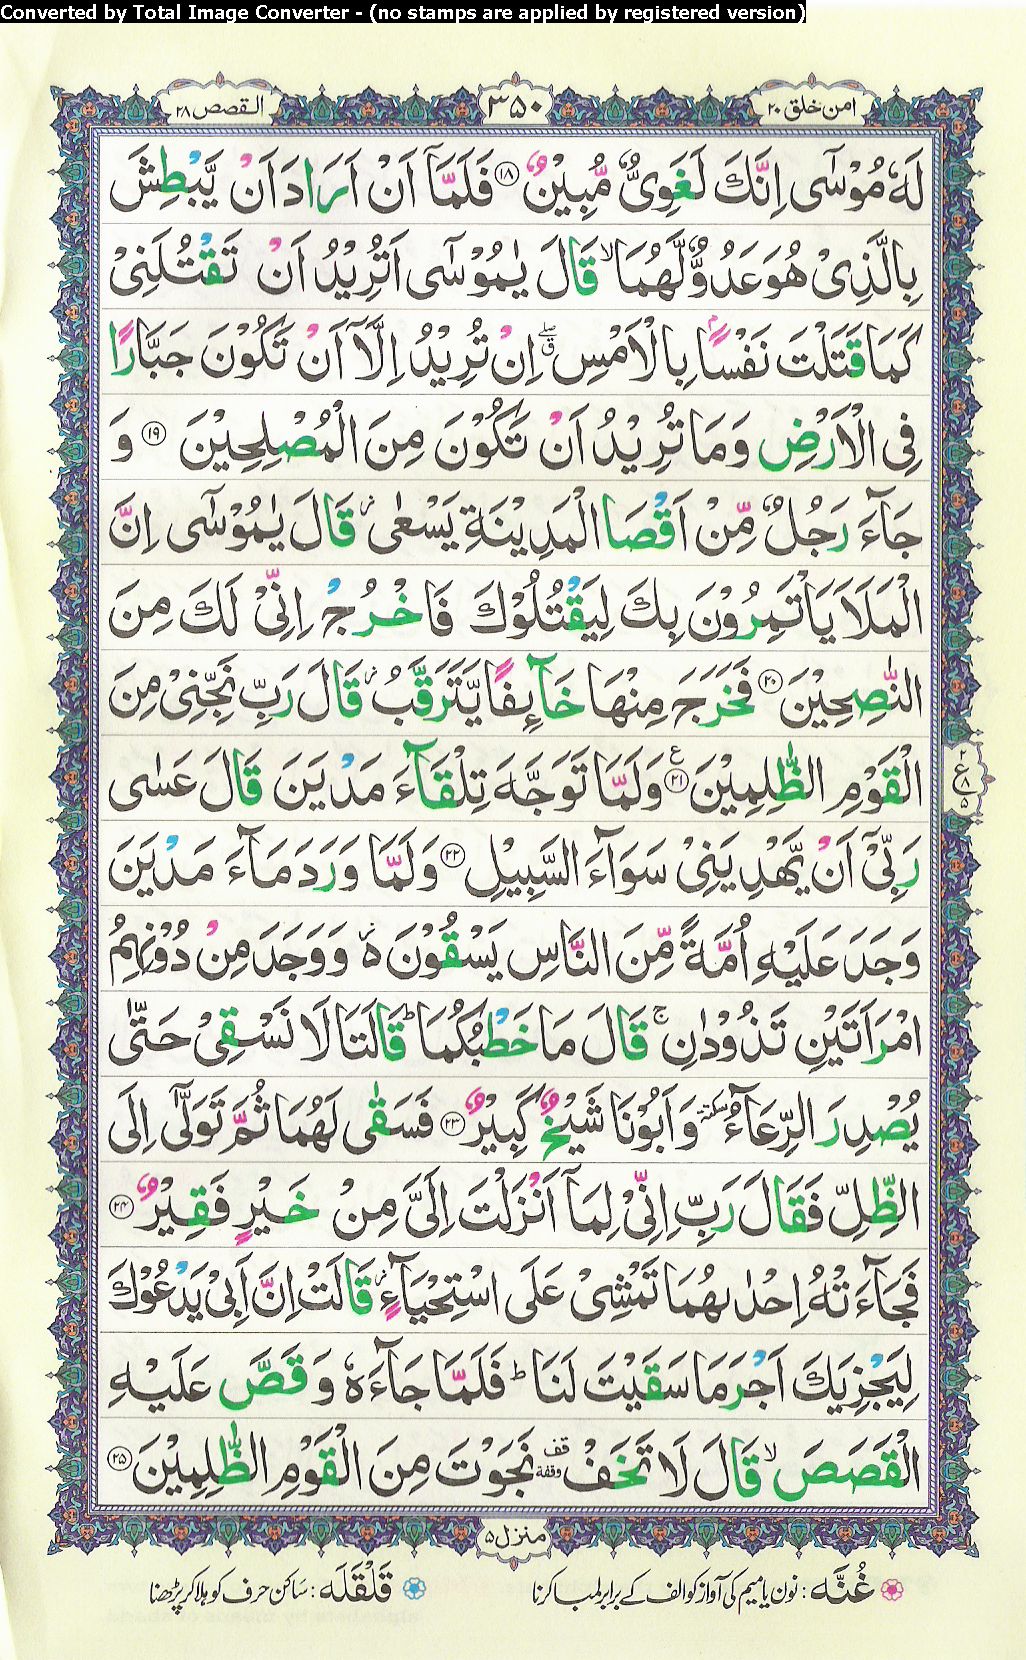 Converted by Total Image Converter - (no stamps are applied by registered version)
امن خلق ٢٠
٣٥٠
القصص ٢٨
لَهٗ مُوْسٰۤى اِنَّكَ لَغَوِىٌّ مُّبِيْنٌ ١٨ فَلَمَّاۤ اَنْ اَرَادَ اَنْ يَّبْطِشَ
بِالَّذِىْ هُوَ عَدُوٌّ لَّهُمَا ۙ قَالَ يٰمُوْسٰۤى اَتُرِيْدُ اَنْ تَقْتُلَنِىْ
كَمَا قَتَلْتَ نَفْسًۢا بِالْاَمْسِ ۖق اِنْ تُرِيْدُ اِلَّاۤ اَنْ تَكُوْنَ جَبَّارًا
فِى الْاَرْضِ وَمَا تُرِيْدُ اَنْ تَكُوْنَ مِنَ الْمُصْلِحِيْنَ ١٩ وَ
جَآءَ رَجُلٌ مِّنْ اَقْصَا الْمَدِيْنَةِ يَسْعٰى ز قَالَ يٰمُوْسٰۤى اِنَّ
الْمَلَاَ يَاْتَمِرُوْنَ بِكَ لِيَقْتُلُوْكَ فَاخْرُجْ اِنِّىْ لَكَ مِنَ
النّٰصِحِيْنَ ٢٠ فَخَرَجَ مِنْهَا خَآئِفًا يَّتَرَقَّبُ ز قَالَ رَبِّ نَجِّنِىْ مِنَ
الْقَوْمِ الظّٰلِمِيْنَ ٢١ ع وَلَمَّا تَوَجَّهَ تِلْقَآءَ مَدْيَنَ قَالَ عَسٰى
٢
ع
٨
٥
رَبِّىْۤ اَنْ يَّهْدِيَنِىْ سَوَآءَ السَّبِيْلِ ٢٢ وَلَمَّا وَرَدَ مَآءَ مَدْيَنَ
وَجَدَ عَلَيْهِ اُمَّةً مِّنَ النَّاسِ يَسْقُوْنَ ۵ز وَوَجَدَ مِنْ دُوْنِهِمُ
امْرَاَتَيْنِ تَذُوْدٰنِ ۚ قَالَ مَا خَطْبُكُمَا ؕ قَالَتَا لَا نَسْقِىْ حَتّٰى
يُصْدِرَ الرِّعَآءُ سكتة وَاَبُوْنَا شَيْخٌ كَبِيْرٌ ٢٣ فَسَقٰى لَهُمَا ثُمَّ تَوَلّٰۤى اِلَى
الظِّلِّ فَقَالَ رَبِّ اِنِّىْ لِمَاۤ اَنْزَلْتَ اِلَىَّ مِنْ خَيْرٍ فَقِيْرٌ ٢٤
فَجَآءَتْهُ اِحْدٰىهُمَا تَمْشِىْ عَلَى اسْتِحْيَآءٍ ز قَالَتْ اِنَّ اَبِىْ يَدْعُوْكَ
لِيَجْزِيَكَ اَجْرَ مَا سَقَيْتَ لَنَا ؕ فَلَمَّا جَآءَهٗ وَقَصَّ عَلَيْهِ
الْقَصَصَ ۙ قَالَ لَا تَخَفْ قف وقفة نَجَوْتَ مِنَ الْقَوْمِ الظّٰلِمِيْنَ ٢٥
منزل ٥
غُنَّه : نون یا میم کی آواز کو الف کے برابر لمبا کرنا
قَلْقَلَه : ساکن حرف کو ہلا کر پڑھنا